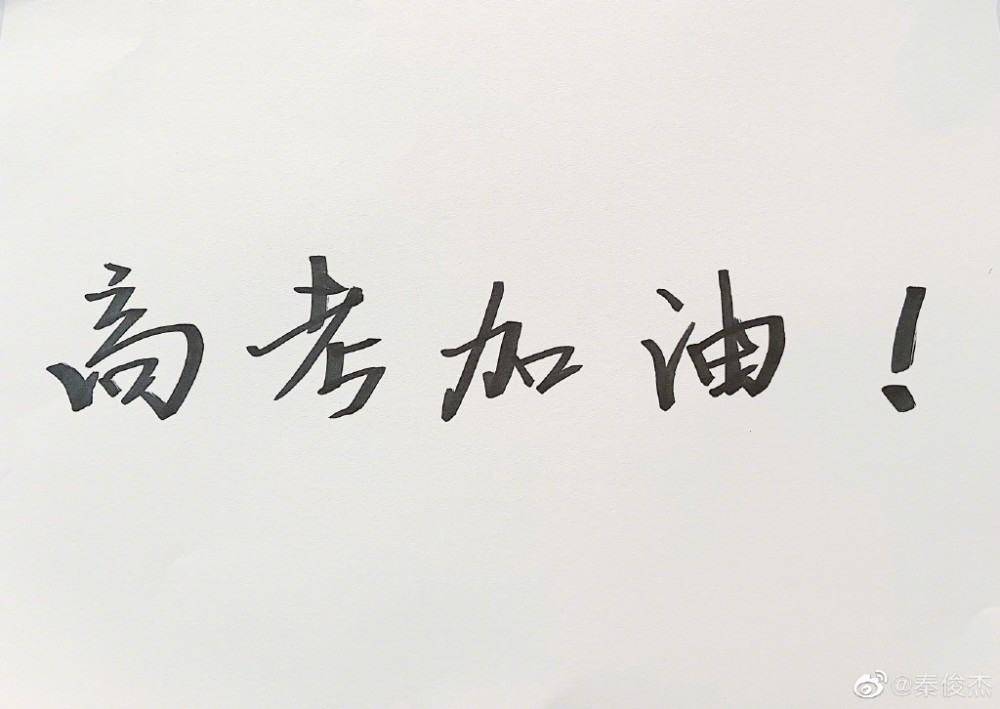 高考加油！
@秦俊杰